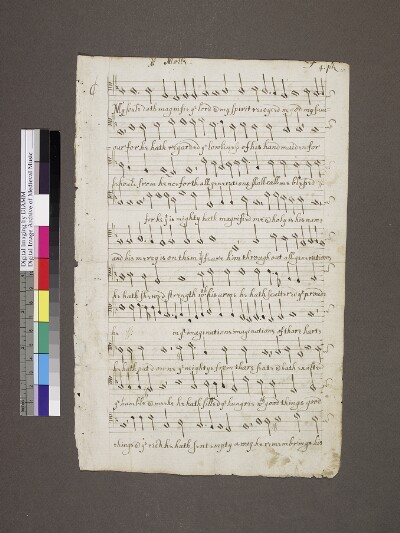 My soule doth magnifie yͤ lord & my spirit reioyced in god my saui
our for he hath regarded yͤ lowliness of his handmaiden for
behould from henceforth all generations shall call me blessed
for he yᵗ is mighty hath magnified me & holy is his name
and his mercy is on them yᵗ feare him throughout all generations
he hath shewed strength wᵗʰ his arme he hath scattered yͤ proude
in yͤ imaginations imaginations of thare harts
he hath put downe yͤ mightye from thare seate & hath exalted
yͤ humble & meeke he hath filled yͤ hungrie wᵗʰ good things good
things & yͤ rich he hath sent empty away he remembringe his
Digital Imaging by DIAMM
Digital Image Archive of Medieval Music